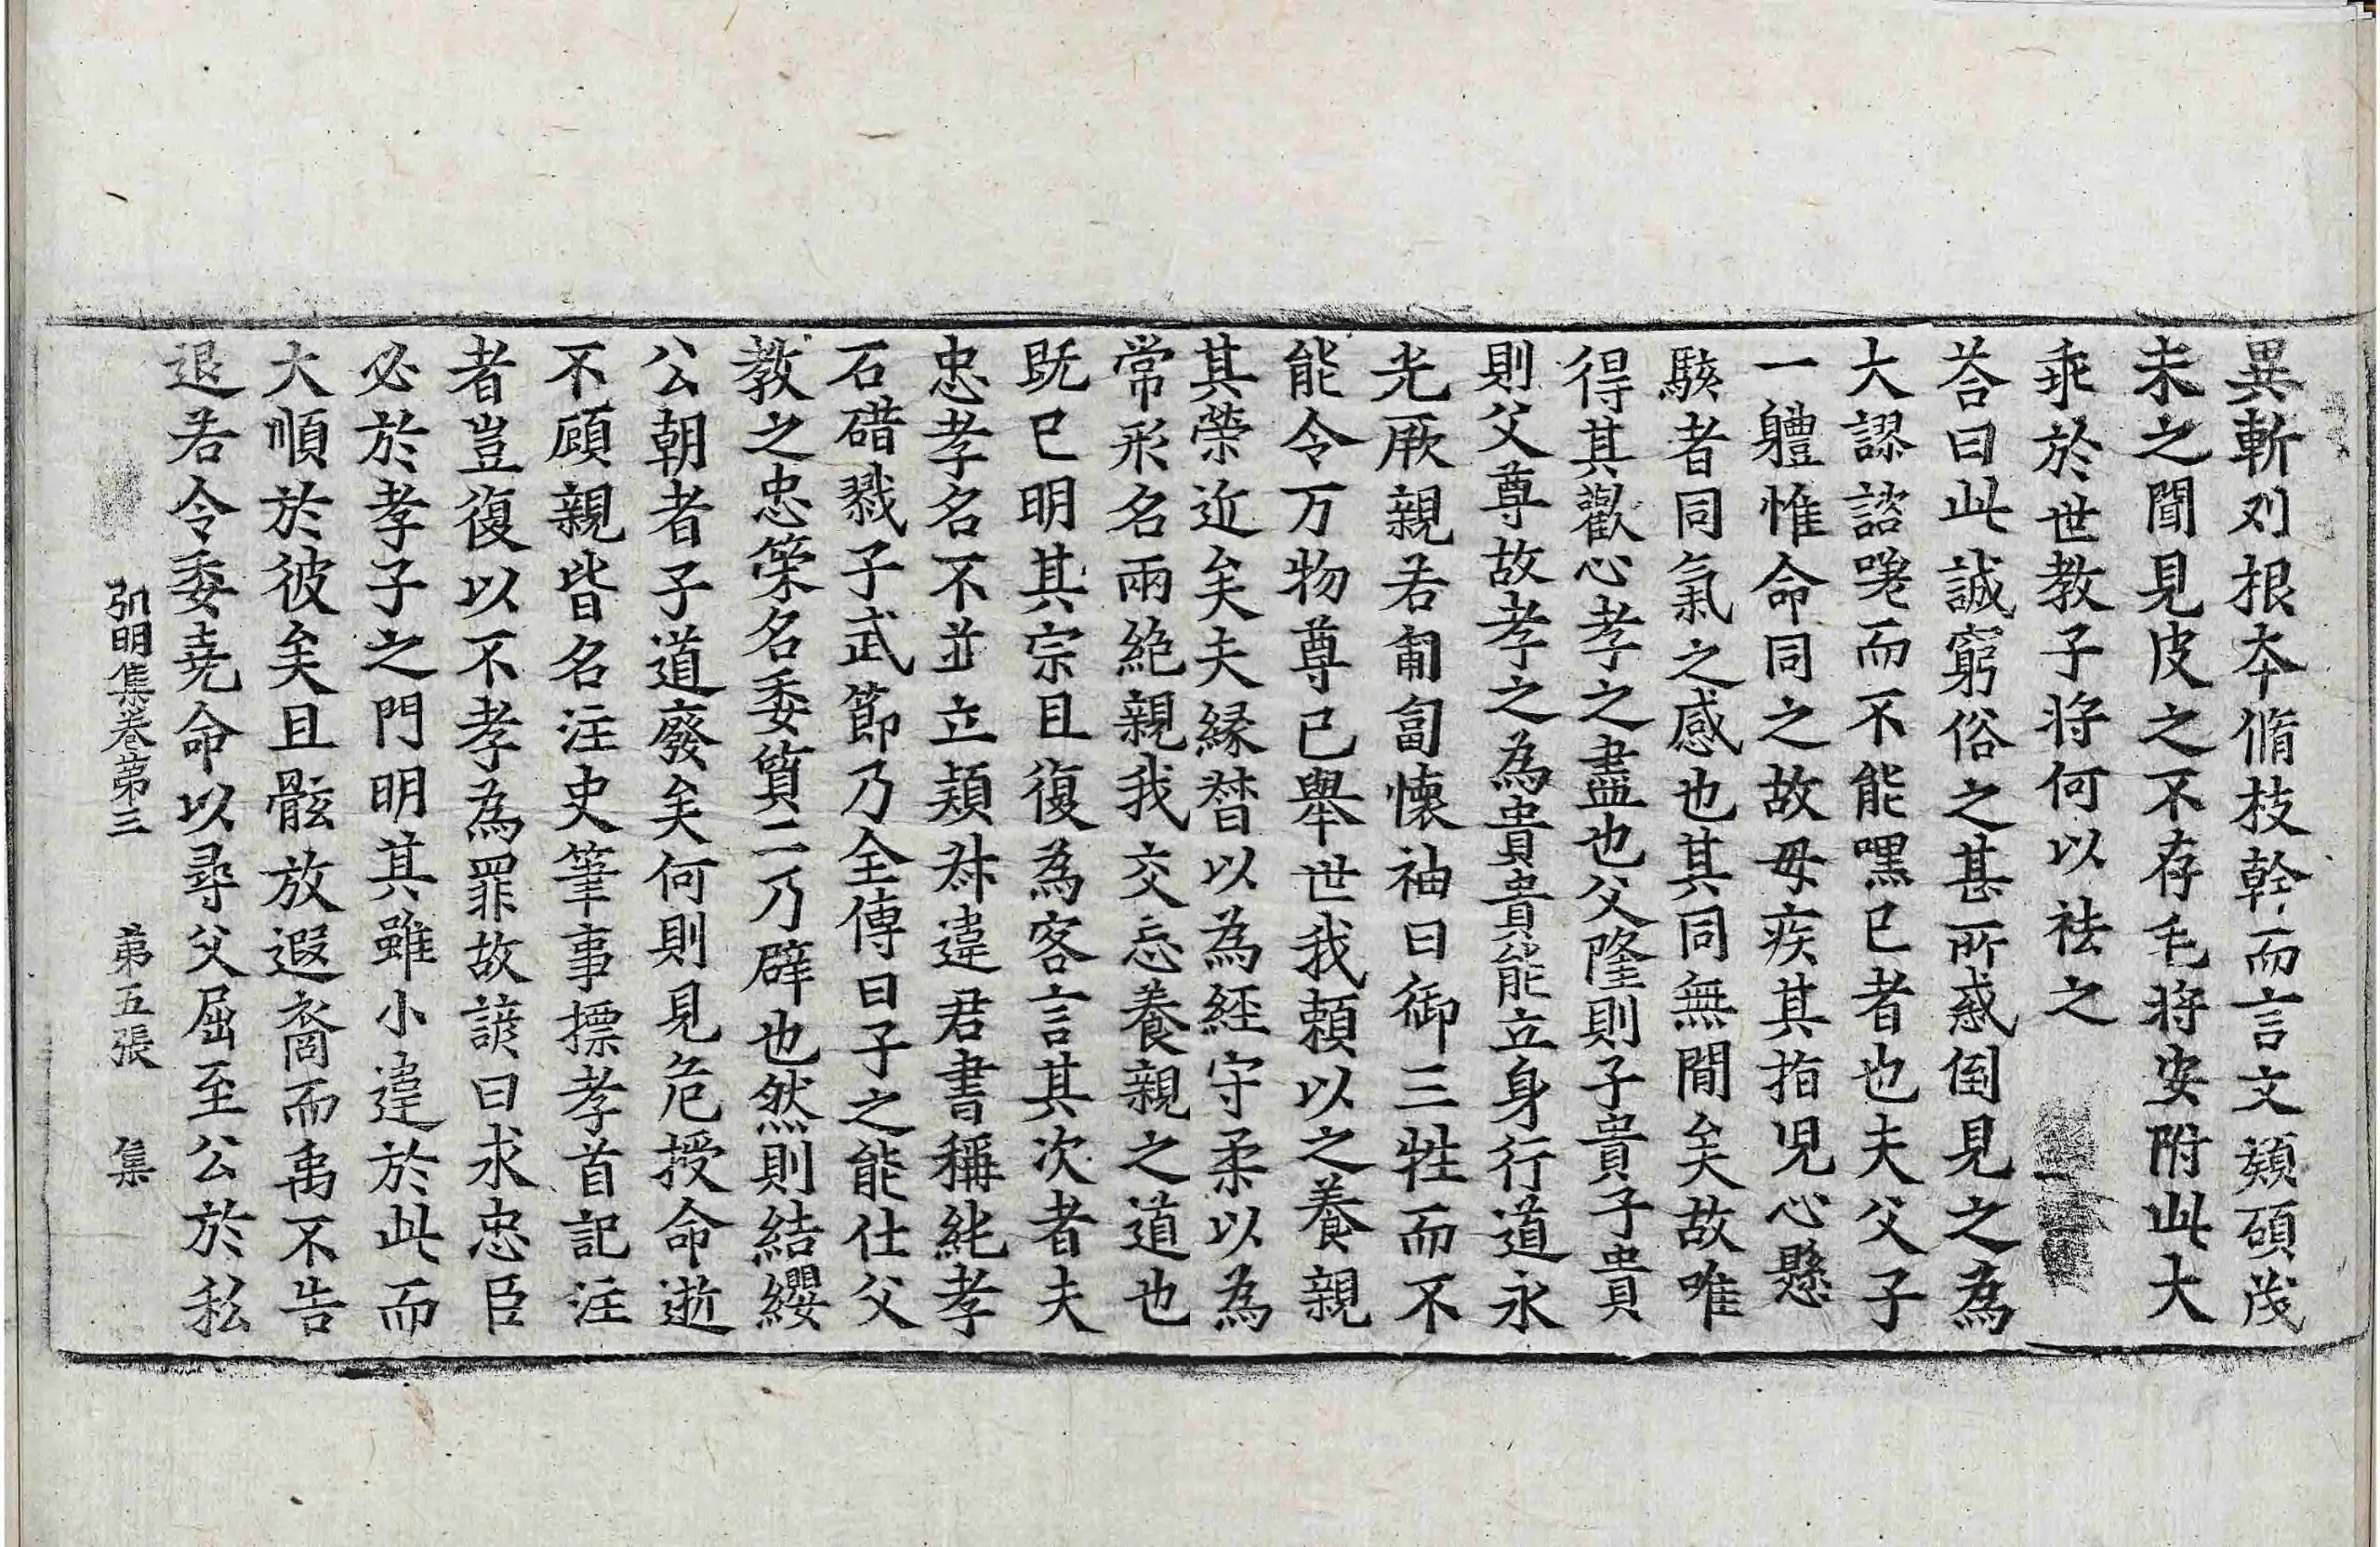 異斬刈根夲脩枝幹而言文頴碩茂
未之聞見皮之不存毛將安附此大
乖於世教子將何以祛之
荅曰此誠窮俗之甚所惑倒見之為
大謬諮嗟而不能嘿已者也夫父子
一軆惟命同之故母疾其指児心懸
駭者同氣之感也其同無間矣故唯
得其歡心孝之盡也父隆則子貴子貴
則父尊故孝之為貴貴能立身行道永
光厥親若匍匐懷袖日御三牲而不
能令万物尊己舉世我頼以之養親
其榮近矣夫縁督以為経守柔以為
常形名兩絶親我交忘養親之道也
既已明其宗且復為客言其次者夫
忠孝名不並立頴叔違君書稱純孝
石碏戮子武節乃全傳曰子之能仕父
教之忠䇿名委質二乃辟也然則結纓
公朝者子道廢矣何則見危授命逝
不顧親皆名注史筆事摽孝首記注
者豈復以不孝為罪故諺曰求忠臣
必於孝子之門明其雖小違於此而
大順於彼矣且骸放遐裔而禹不告
退若令委堯命以尋父屈至公於私
弘明集卷第三　第五張　集